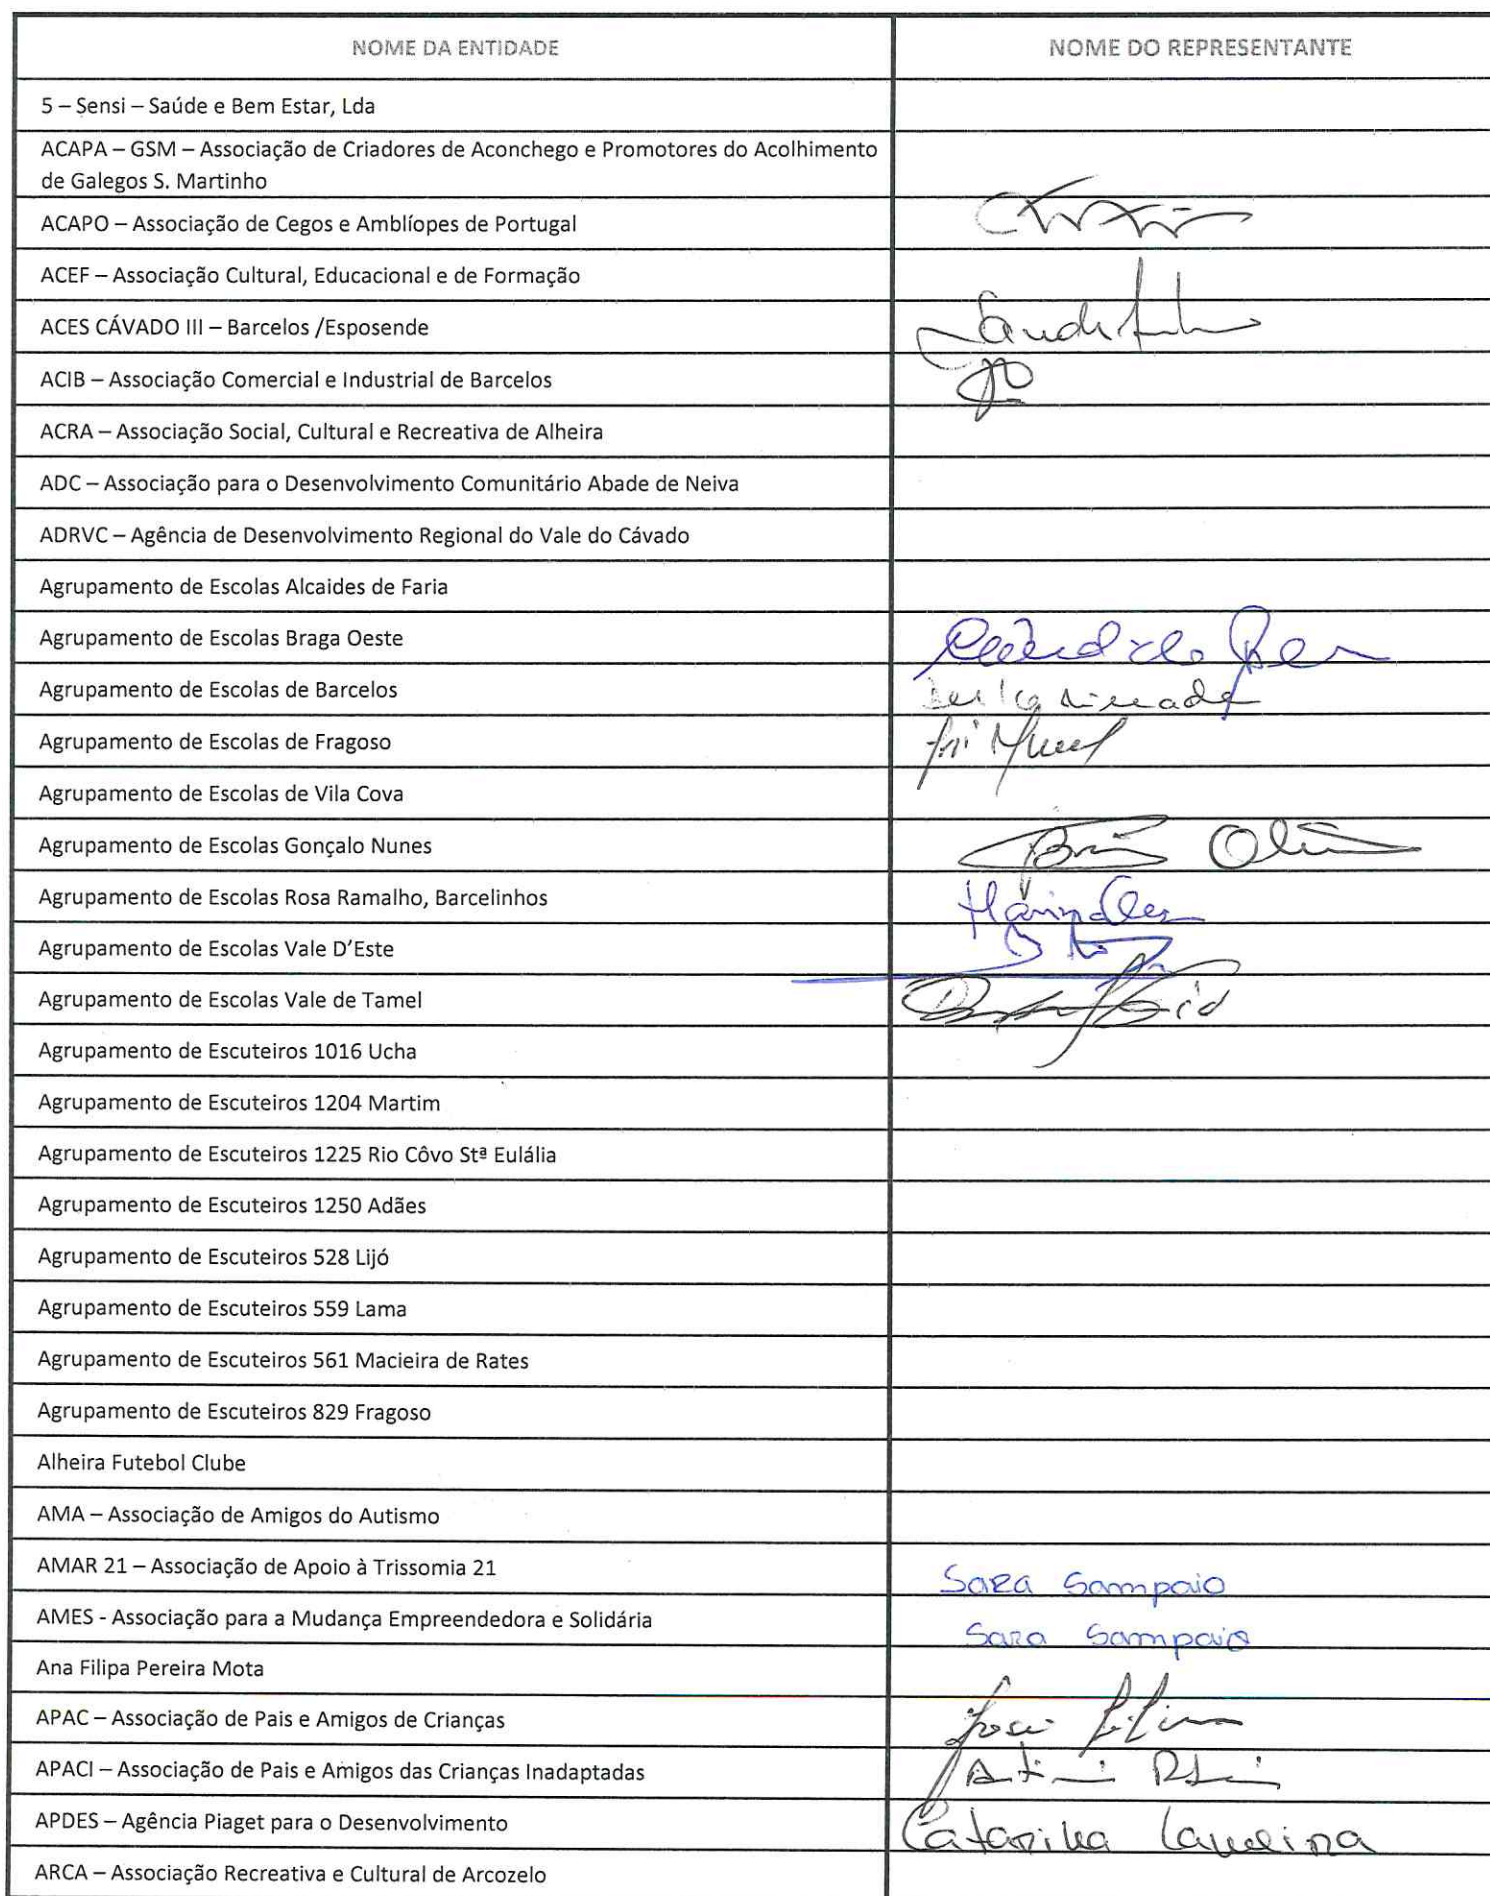 NOME DA ENTIDADE NOME DO REPRESENTANTE
5 – Sensi – Saúde e Bem Estar, Lda
ACAPA – GSM – Associação de Criadores de Aconchego e Promotores do Acolhimento
de Galegos S. Martinho
ACAPO – Associação de Cegos e Amblíopes de Portugal
ACEF – Associação Cultural, Educacional e de Formação
ACES CÁVADO III – Barcelos /Esposende
ACIB – Associação Comercial e Industrial de Barcelos
ACRA – Associação Social, Cultural e Recreativa de Alheira
ADC – Associação para o Desenvolvimento Comunitário Abade de Neiva
ADRVC – Agência de Desenvolvimento Regional do Vale do Cávado
Agrupamento de Escolas Alcaides de Faria
Agrupamento de Escolas Braga Oeste
Agrupamento de Escolas de Barcelos
Agrupamento de Escolas de Fragoso
Agrupamento de Escolas de Vila Cova
Agrupamento de Escolas Gonçalo Nunes
Agrupamento de Escolas Rosa Ramalho, Barcelinhos
Agrupamento de Escolas Vale D’Este
Agrupamento de Escolas Vale de Tamel
Agrupamento de Escuteiros 1016 Ucha
Agrupamento de Escuteiros 1204 Martim
Agrupamento de Escuteiros 1225 Rio Côvo Stª Eulália
Agrupamento de Escuteiros 1250 Adães
Agrupamento de Escuteiros 528 Lijó
Agrupamento de Escuteiros 559 Lama
Agrupamento de Escuteiros 561 Macieira de Rates
Agrupamento de Escuteiros 829 Fragoso
Alheira Futebol Clube
AMA – Associação de Amigos do Autismo
AMAR 21 – Associação de Apoio à Trissomia 21 Sara Sampaio
AMES - Associação para a Mudança Empreendedora e Solidária Sara Sampaio
Ana Filipa Pereira Mota
APAC – Associação de Pais e Amigos de Crianças
APACI – Associação de Pais e Amigos das Crianças Inadaptadas
APDES – Agência Piaget para o Desenvolvimento Catarina
ARCA – Associação Recreativa e Cultural de Arcozelo